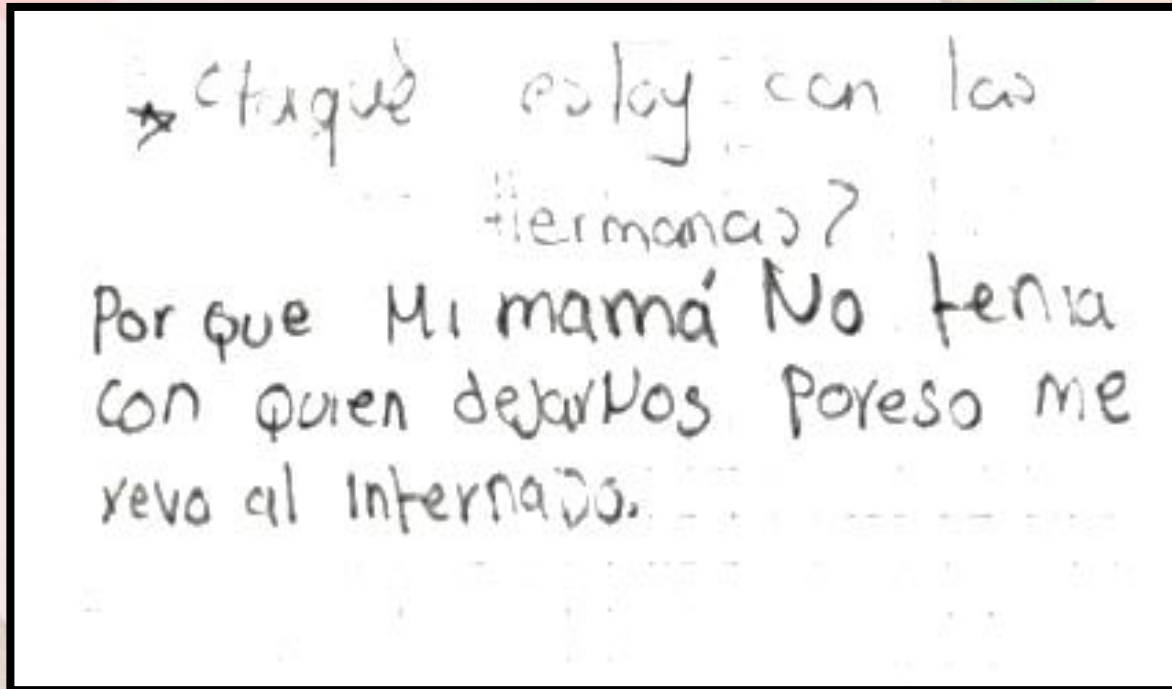 estoy con las
Hermanas?
Por que Mi mamá No tenia
con quien dejarNos Poreso me
yevo al internado.